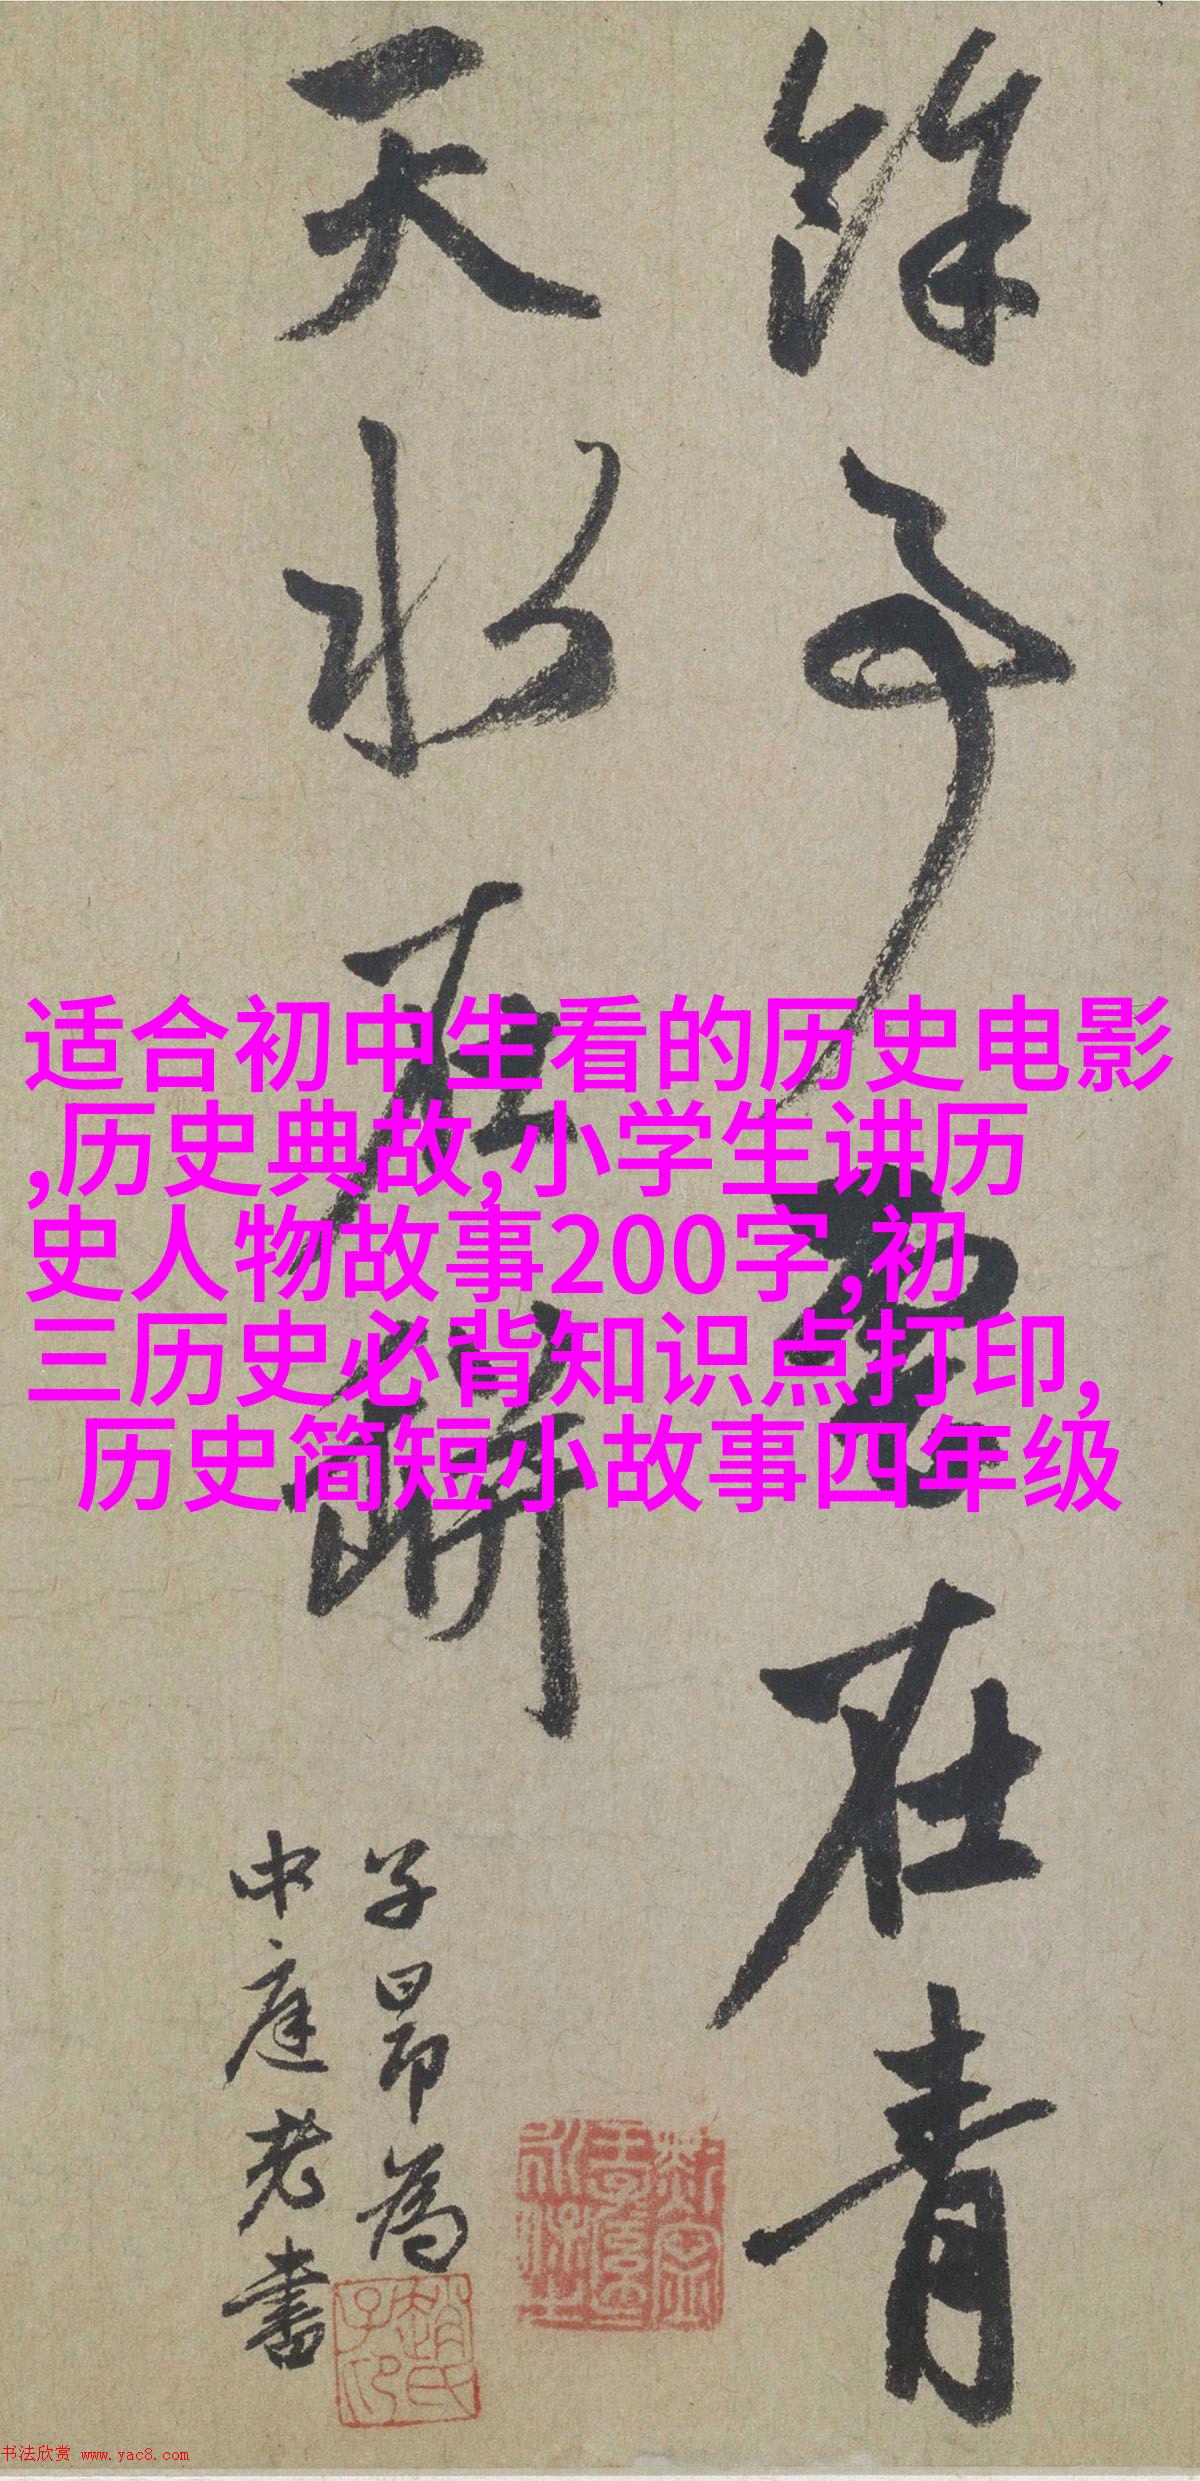 餘
天水
在青
子昂為
中庭老書
趙氏子昂
适合初中生看的历史电影
,历史典故,小学生讲历
史人物故事200字,初
三历史必背知识点打印,
历史简短小故事四年级
书法欣赏 www.yac8.com